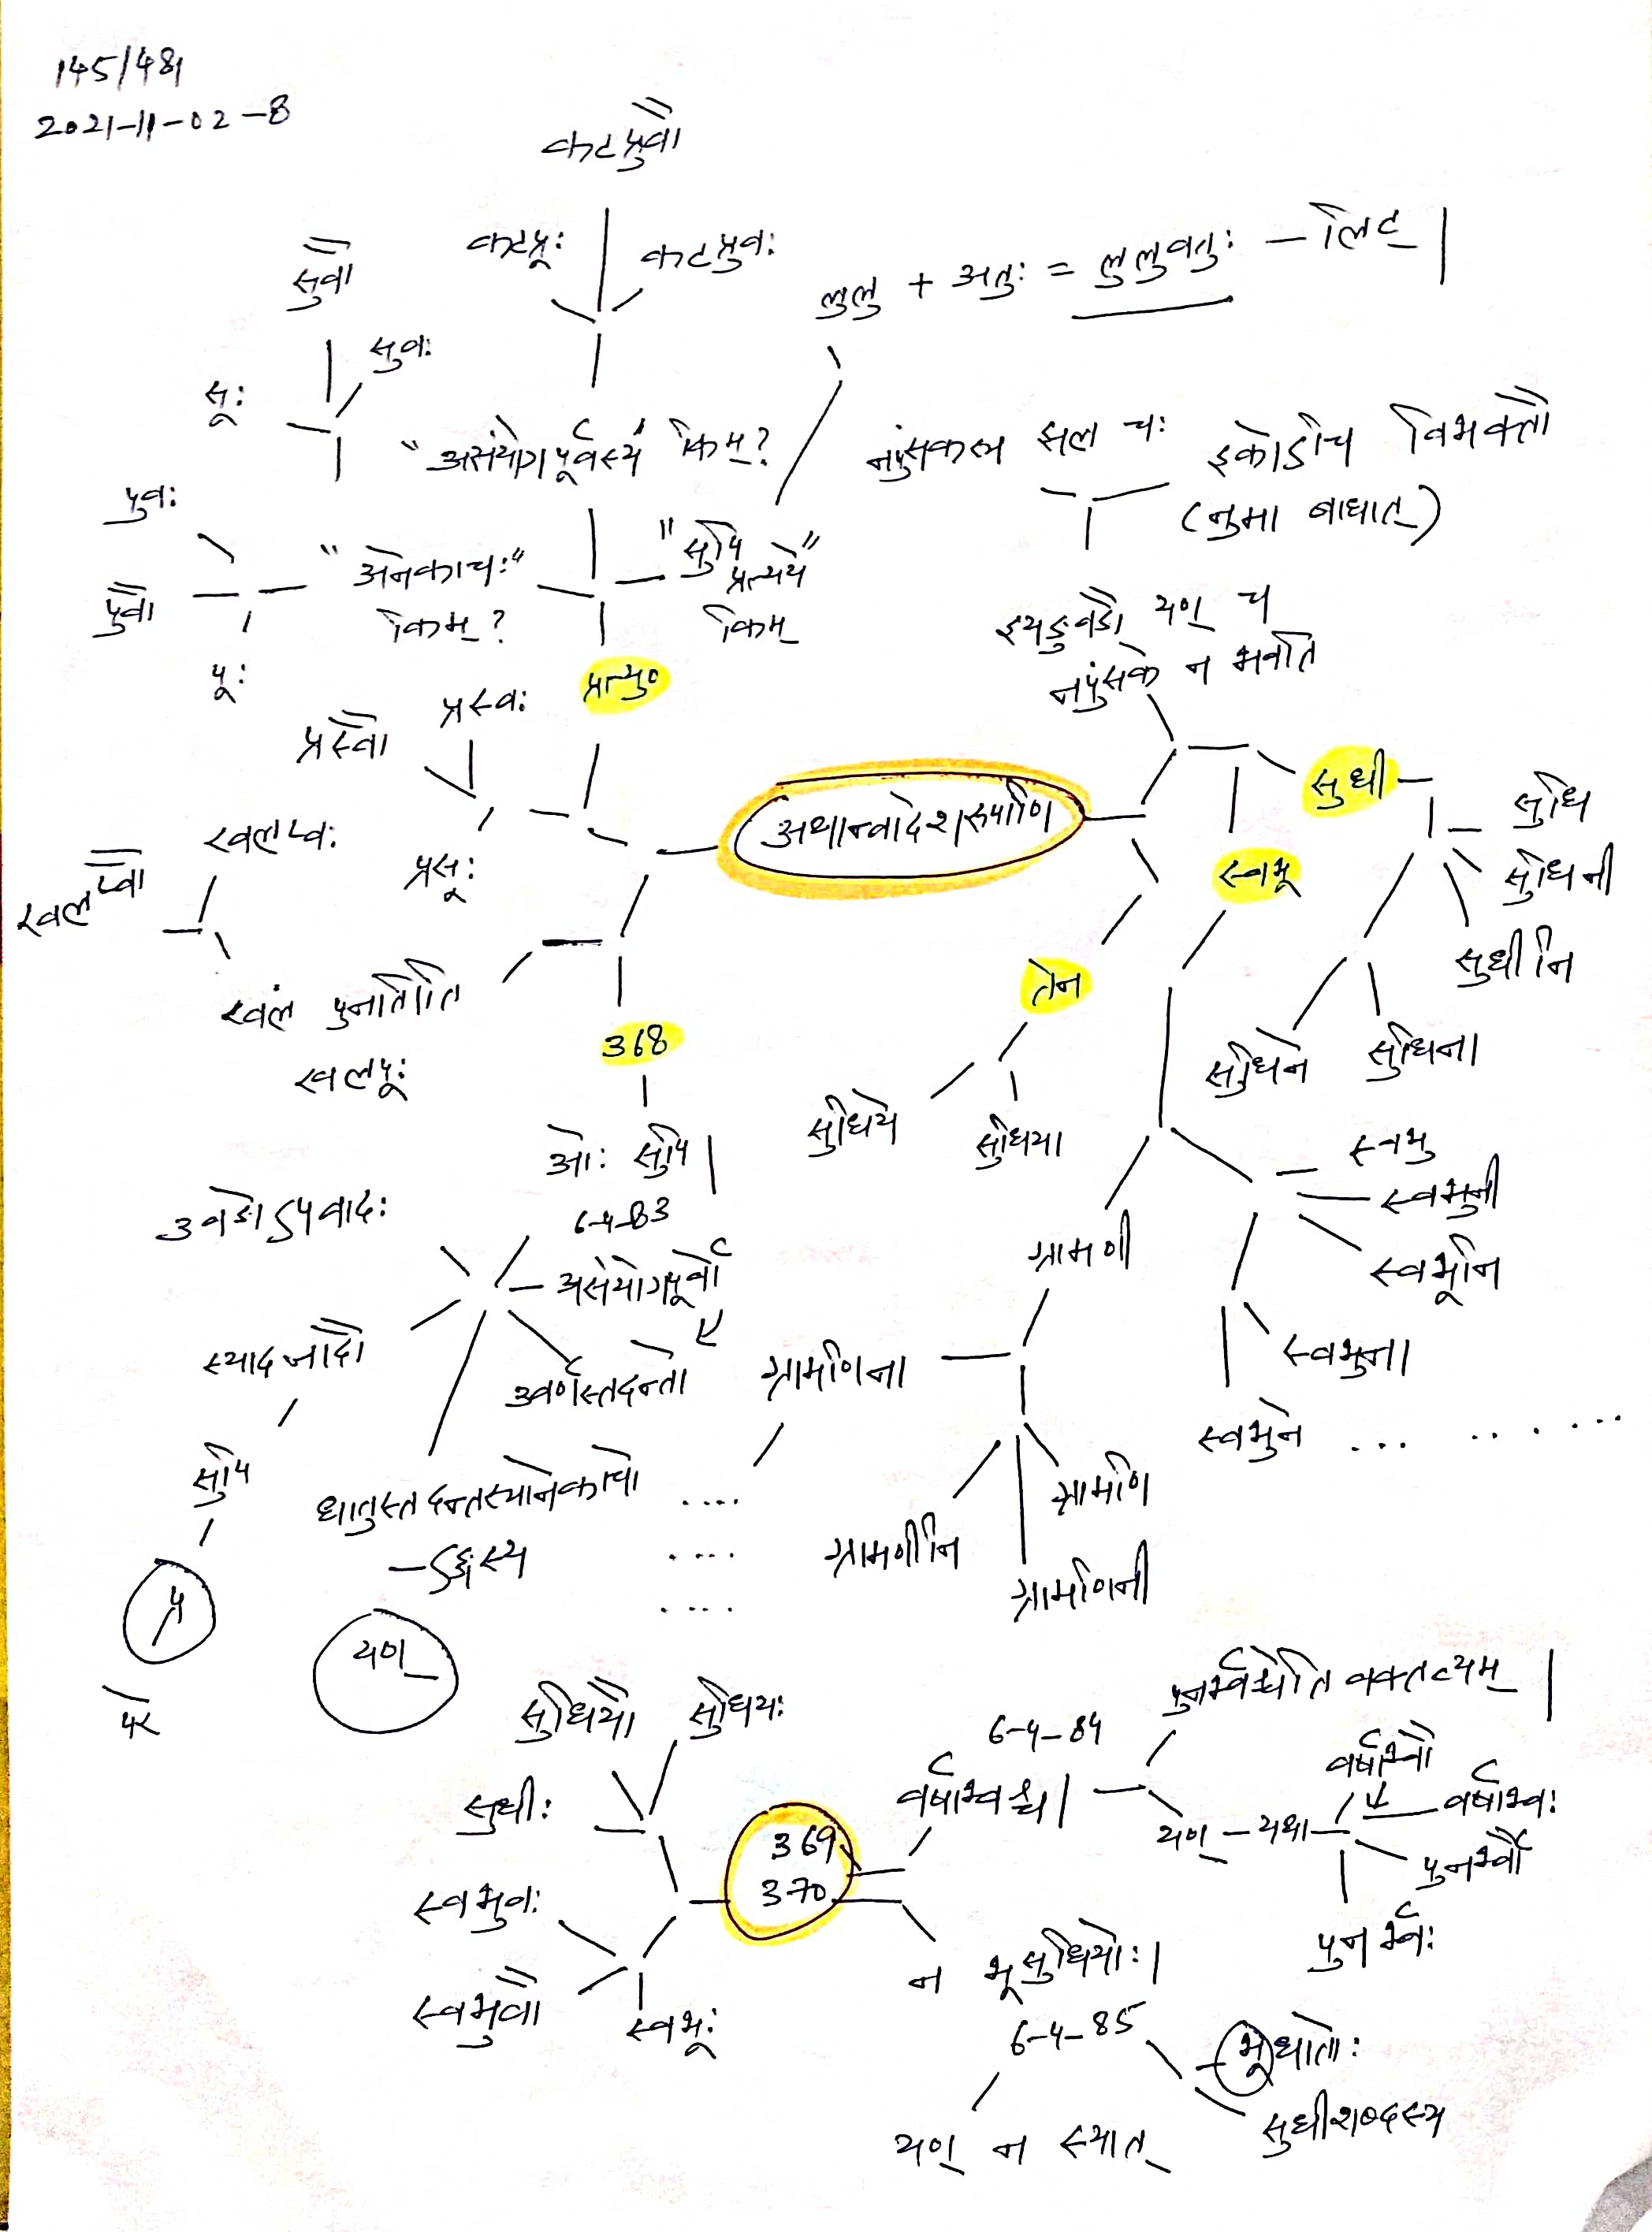 145/481
2021-11-02-8
कटप्रुवौ
कटप्रूः
कटप्रुवः
सुवौ
सुवः
सूः
लुलु + अतुः = लुलुवतुः - लिट् |
"असंयोगपूर्वस्य" किम्?
नपुंसकस्य झल चः
इकोऽचि विभक्तौ
(नुमा बाधात्)
पुवः
पुवौ
पूः
"अनेकाचः"
किम्?
"सुपि
प्रत्यये"
किम्
इयङुवङौ यण् च
नपुंसके न भवति
प्रत्यु०
प्रस्वः
प्रस्वौ
प्रसूः
अथान्वादेशरूपाणि
सुधी
सुधि
सुधिनी
सुधीनि
सुधिना
सुधिने
स्वभू
खलप्वः
खलप्वौ
खलं पुनातीति
खलपूः
तेन
सुधिये
सुधिया
368
ओः सुपि |
6-4-83
उवङोऽपवादः
असंयोगपूर्वो
स्यादजादौ
उवर्णस्तदन्तो
सुपि
धातुस्तदन्तस्यानेकाचो
-ऽङ्गस्य
प्रे
परे
यण्
स्वभु
स्वभुनी
स्वभूनि
स्वभुना
स्वभुने ... .. . ...
ग्रामणी
ग्रामणिना
ग्रामणि
ग्रामणीनि
ग्रामणिनी
....
....
....
सुधियौ
सुधियः
सुधीः
स्वभुवः
स्वभुवौ
स्वभूः
369
370
6-4-84
वर्षाभ्वश्च |
पुनर्भ्वश्चेति वक्तव्यम् |
यण् - यथा
वर्षाभ्वौ
वर्षाभ्वः
पुनर्भ्वौ
पुनर्भ्वः
न भूसुधियोः |
6-4-85
भूधातोः
सुधीशब्दस्य
यण् न स्यात्